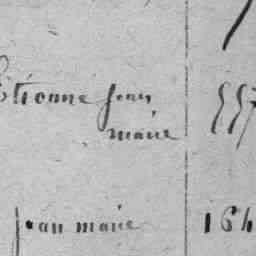 Etienne jean 557
marie
jean marie 164